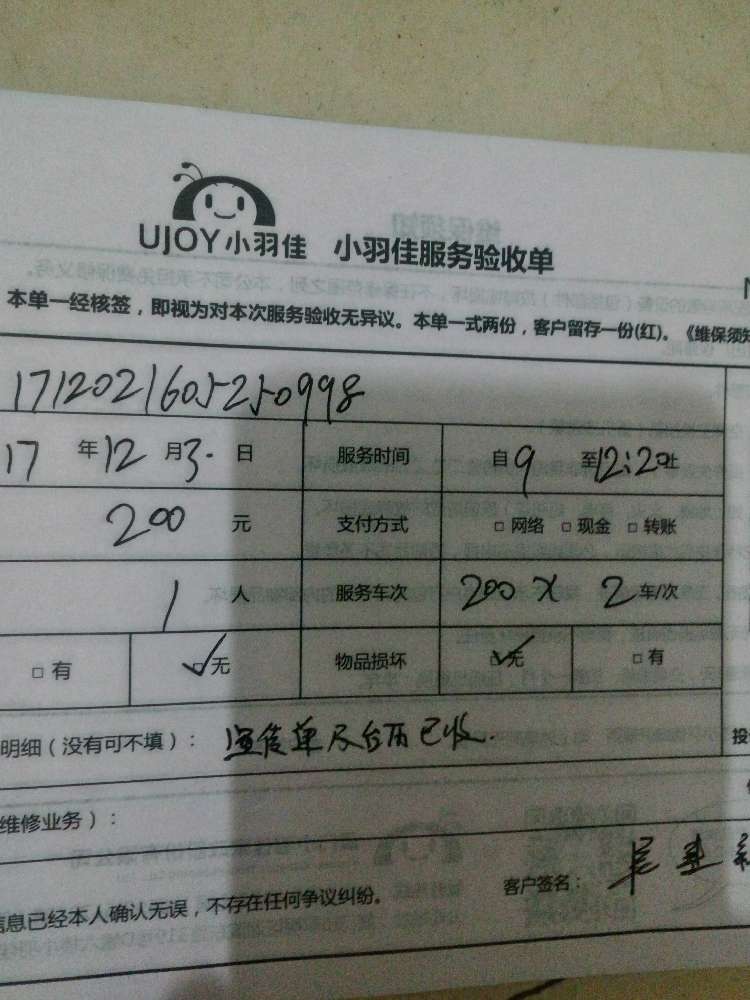 UJOY小羽佳 小羽佳服务验收单
本单一经核签，即视为对本次服务验收无异议。本单一式两份，客户留存一份(红)。《维保须知
1712021605250998
17 年 12 月 3 日 服务时间 自 9 至 12:20止
200 元 支付方式 □ 网络 □ 现金 □ 转账
1 人 服务车次 200 X 2 车/次
□ 有 ☑ 无 物品损坏 ☑ 无 □ 有
明细（没有可不填）： 单 已收 投
维修业务）：
信息已经本人确认无误，不存在任何争议纠纷。 客户签名：